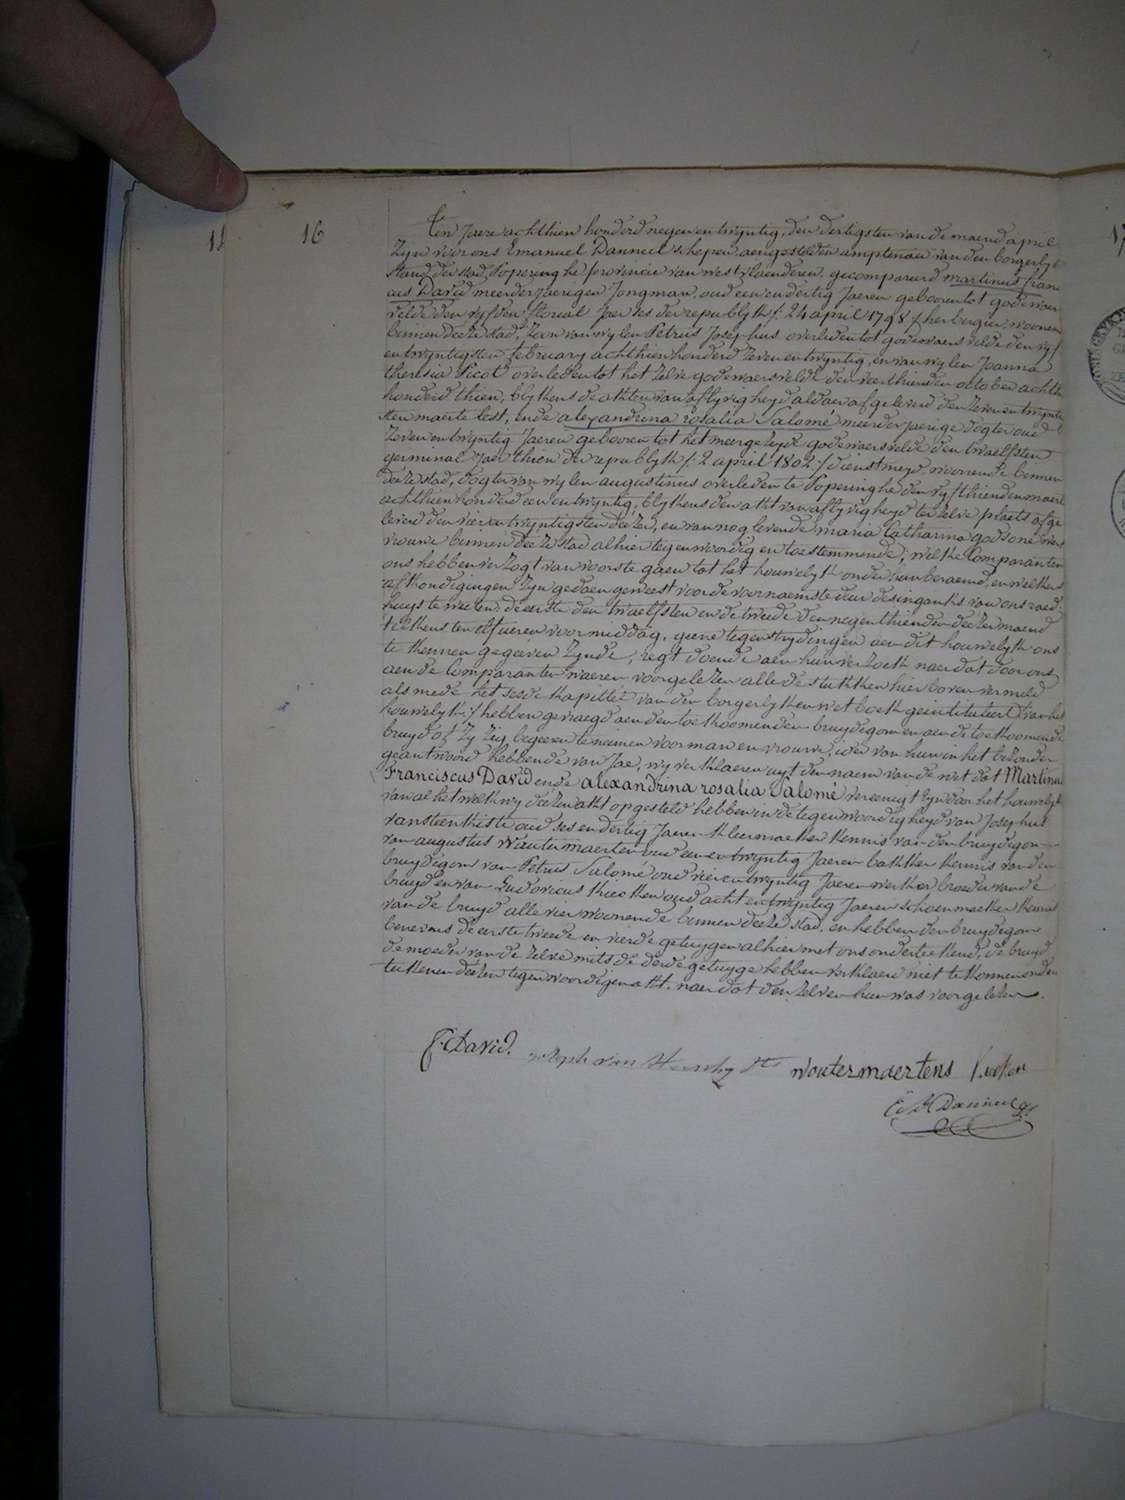 11
16
17
Ten Jaere achthien honderd negen en twyntig, den dertigsten van de maend april
zyn voor ons Emanuel Danneil schepen aengestelden amptenaer van den borgerlyk
stand der stad Poperinghe provincie van westvlaenderen, gecompareerd martinus fran
cus David meerderjaerigen Jongman, oud een en dertig Jaeren gebooren tot godewaer
velde den vyfden floreal Jaer ses der republyk /: 24 april 1798 :/ herbergier woonen
binnen deeze stad, zoon van wylen Petrus Josephus overleden tot godewaersvelde den vyf
en twyntigsten february achthien honderd zeven en twyntig, en van wylen Joanna
theresia Picot overleden tot het zelve godewaersvelde den veerthienden october achth
honderd thien, blykens de akten van aflyvigheyd aldaer afgeleverd den zeven en twynti
sten maerte lest, ende alexandrina rosalia Salomé meerderjaerige dogter oud
zeven en twyntig Jaeren gebooren tot het meergezeyde godewaersvelde den twaelfsten
germinal Jaer thien der republyk /: 2 april 1802 :/ dienstmeyd woonende binnen
deeze stad, dogter van wylen augustinus overleden te Poperinghe den vyfthienden maert
achthien honderd een en twyntig, blykens den akt van aflyvigheyd ter zelve plaets afge
leverd den vier en twyntigsten deezer, en van nog levende maria Catharina godsone werk
vrouwe binnen deeze stad alhier tegenwoordig en toestemmende; welke Comparanten
ons hebben verzogt van voorste gaen tot het houwelyk onder hun beraemd, en welkers
afkondigingen zyn gedaen geweest voor de voornaemste deur des ingank van ons raed
huys te weten: de eerste den twaelfsten en de tweede den negenthienden deezer maend
telkens ten elf ueren voormiddag, geene tegenstrydingen aen dit houwelyk ons
te kennen gegeeven zynde; regt doende aen hun verzoek naer dat door ons
aen de Comparanten waeren voorgelezen alle de stukken hier boven vermeld
als mede het sesde kapittel van den borgerlyken wetboek geintituleerd van het
houwelyk :/ hebben gevraegd aen den toekoomenden bruydegom en aen de toekoomende
bruyd of zy zig begeeren te neemen voor man en vrouwe; ider van hun in het bezonder
geantwoord hebbende van Jae, wy verklaeren uyt den naem van de wet dat Martinus
Franciscus David ende alexandrina rosalia Salomé vereenigt zyn door het houwelyk
van al het welk wy deezen akt opgesteld hebben in de tegenwoordigheyd van Josephus
vansteenkiste oud ses en dertig Jaeren kleermaeker kennis van den bruydegom
van augustus Woutermaerten oud een en twyntig Jaeren bakker kennis van den
bruydegom van Petrus Salomé oud vier en twyntig Jaeren werker broeder van de
bruyd en van Ludovicus kiecken oud acht en twyntig Jaeren schoenmaeker kennis
van de bruyd alle vier woonende binnen deeze stad, en hebben den bruydegom
benevens de eerste tweede en vierde getuygen alhier met ons onderteekend, de bruyd
de moeder van de zelve mits de derde getuyge hebben verklaerd niet te konnen onder
teekenen deezen tegenwoordigen akt, naer dat den zelven hun was voorgelezen.
F. David. Joseph van Steenk woutermaertens kiecken
Danneil